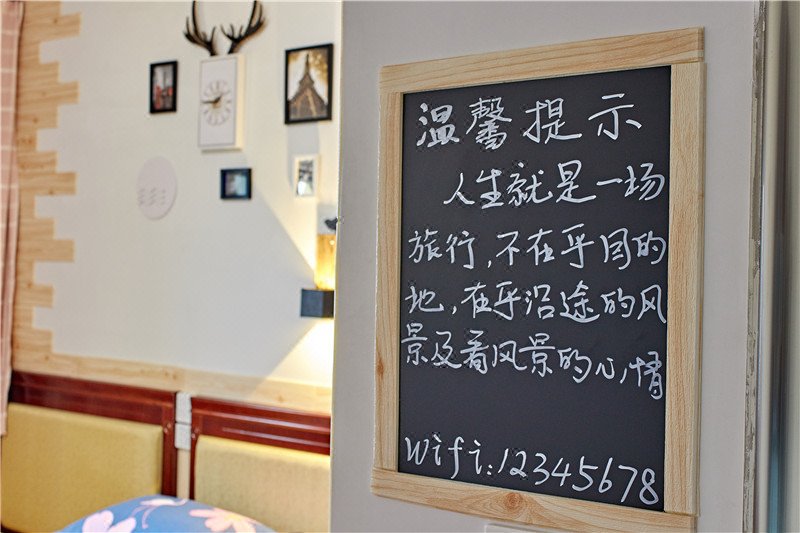 温馨提示
人生就是一场
旅行,不在乎目的
地,在乎沿途的风
景及看风景的心情
Wifi:12345678